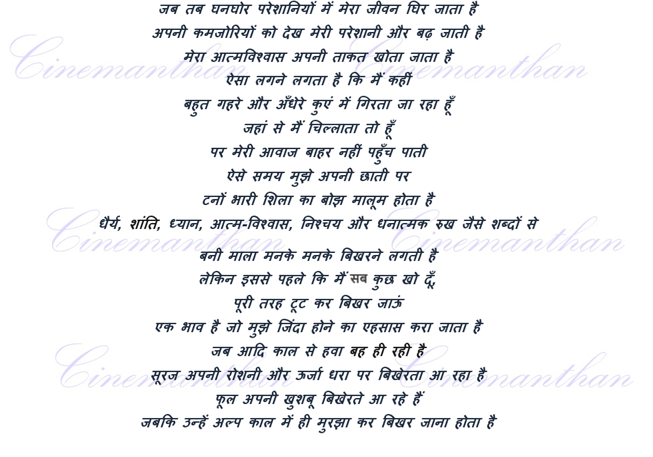 जब तब घनघोर परेशानियों में मेरा जीवन घिर जाता है
अपनी कमजोरियों को देख मेरी परेशानी और बढ़ जाती है
मेरा आत्मविश्वास अपनी ताकत खोता जाता है
Cinemanthan Cinemanthan
ऐसा लगने लगता है कि मैं कहीं
बहुत गहरे और अँधेरे कुएं में गिरता जा रहा हूँ
जहां से मैं चिल्लाता तो हूँ
पर मेरी आवाज बाहर नहीं पहुँच पाती
ऐसे समय मुझे अपनी छाती पर
टनों भारी शिला का बोझ मालूम होता है
धैर्य, शांति, ध्यान, आत्म-विश्वास, निश्चय और धनात्मक रुख जैसे शब्दों से
Cinemanthan Cinemanthan
बनी माला मनके मनके बिखरने लगती है
लेकिन इससे पहले कि मैं सब कुछ खो दूँ,
पूरी तरह टूट कर बिखर जाऊं
एक भाव है जो मुझे जिंदा होने का एहसास करा जाता है
जब आदि काल से हवा बह ही रही है
Cinemanthan Cinemanthan
सूरज अपनी रोशनी और ऊर्जा धरा पर बिखेरता आ रहा है
फूल अपनी खुशबू बिखेरते आ रहे हैं
जबकि उन्हें अल्प काल में ही मुरझा कर बिखर जाना होता है